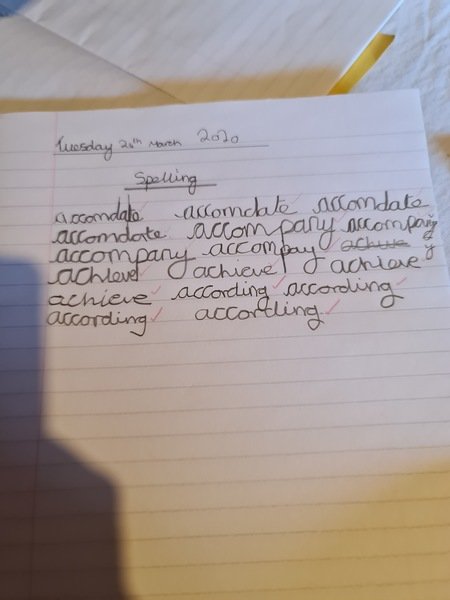 Tuesday 24th March 2020
Spelling
accomdate accomdate accomdate
accomdate accompany accompany
accompany accompany achieve
achieve achieve achieve
achieve according according
according according